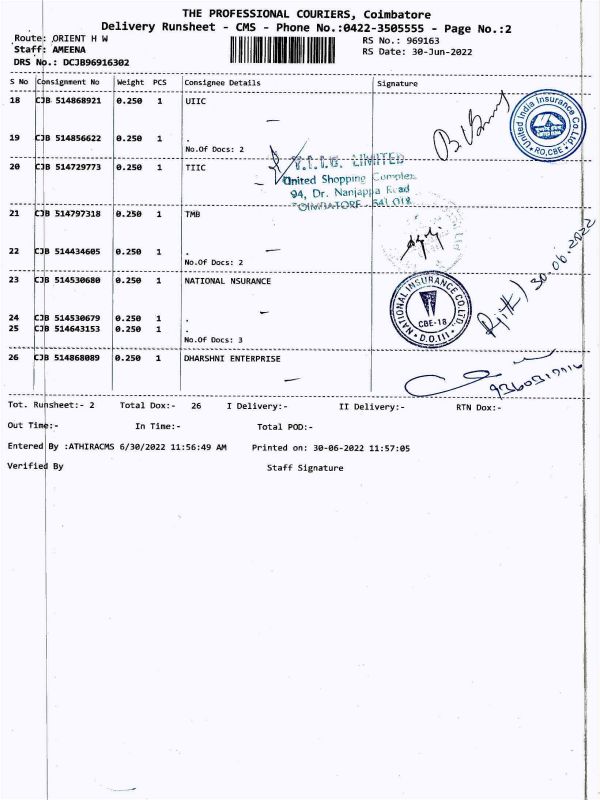 THE PROFESSIONAL COURIERS, Coimbatore
Delivery Runsheet - CMS - Phone No.:0422-3505555 - Page No.:2
Route: ORIENT H W
RS No.: 969163
Staff: AMEENA
RS Date: 30-Jun-2022
DRS No.: DCJB96916302
S No Consignment No Weight PCS Consignee Details Signature
18 CJB 514868921 0.250 1 UIIC
United India Insurance Co. Ltd.
RO, CBE
19 CJB 514856622 0.250 1 .
No.Of Docs: 2
20 CJB 514729773 0.250 1 TIIC
LIMITED
United Shopping Complex
94, Dr. Nanjappa Road
COIMBATORE 641 018
21 CJB 514797318 0.250 1 TMB
22 CJB 514434605 0.250 1 .
No.Of Docs: 2
23 CJB 514530680 0.250 1 NATIONAL NSURANCE
NATIONAL INSURANCE CO. LTD.
CBE-18
D.O.III
30.06.2022
24 CJB 514530679 0.250 1 .
25 CJB 514643153 0.250 1 .
No.Of Docs: 3
26 CJB 514868089 0.250 1 DHARSHNI ENTERPRISE
Tot. Runsheet:- 2 Total Dox:- 26 I Delivery:- II Delivery:- RTN Dox:-
Out Time:- In Time:- Total POD:-
Entered By :ATHIRACMS 6/30/2022 11:56:49 AM Printed on: 30-06-2022 11:57:05
Verified By Staff Signature